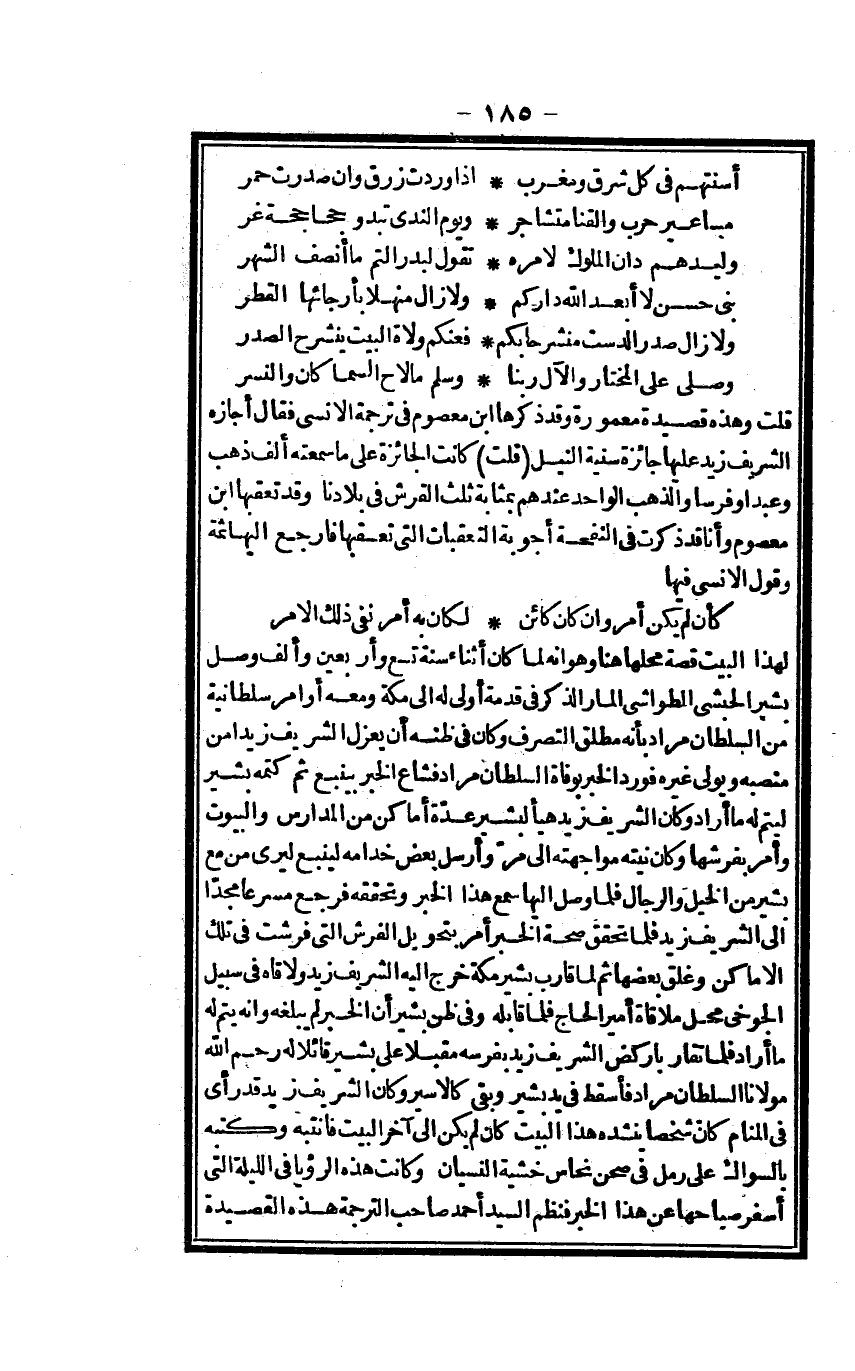 - ١٨٥ -
أسنتهم فى كل شرق ومغرب * اذا وردت زرق وان صدرت حمر
مساعير حرب والقنا متشاجر * ويوم الندى تبدو جحاجحة غر
وليدهم دان الملوك لامره * تقول لبدر التم ما أنصف الشهر
بنى حسن لا أبعد الله داركم * ولا زال منهلا بأرجائها القطر
ولا زال صدر الدست منشرحا بكم * فعنكم ولاة البيت ينشرح الصدر
وصلى على المختار والآل ربنا * وسلم مالاح السما كان والنسر
قلت وهذه قصيدة معمورة وقد ذكرها ابن معصوم فى ترجمة الانسى فقال أجازه
الشريف زيد عليها جائزة سنية النيل (قلت) كانت الجائزة على ما سمعته ألف ذهب
وعبدا وفرسا والذهب الواحد عندهم بمثابة ثلث القرش فى بلادنا وقد تعقبها ابن
معصوم وأنا قد ذكرت فى النفحة أجوبة التعقبات التى تعقبها فارجع اليها ثمة
وقول الانسى فيها
كأن لم يكن أمر وان كان كائن * لكان به أمر نفى ذلك الامر
لهذا البيت قصة محلها هنا وهو انه لما كان أثناء سنة تسع وأربعين وألف وصل
بشير الحبشى الطواشى المار الذكر فى قدمة أولى له الى مكة ومعه أوامر سلطانية
من السلطان مراد بأنه مطلق التصرف وكان فى ظنه أن يعزل الشريف زيدا من
منصبه ويولى غيره فورد الخبر بوفاة السلطان مراد فشاع الخبر بينبع ثم كتمه بشير
ليتم له ما أراد وكان الشريف زيد هيأ لبشير عدّة أماكن من المدارس والبيوت
وأمر بفرشها وكان نيته مواجهته الى مرّ وأرسل بعض خدامه لينبع ليرى من مع
بشير من الخيل والرجال فلما وصل اليها سمع هذا الخبر وتحققه فرجع مسرعا مجدّا
الى الشريف زيد فلما تحقق صحة الخبر أمر بتحويل الفرش التى فرشت فى تلك
الاماكن وغلق بعضها ثم لما قارب بشير مكة خرج اليه الشريف زيد ولاقاه فى سبيل
الجوخى محل ملاقاة أمير الحاج فلما قابله وفى ظن بشير أن الخبر لم يبلغه وانه يتم له
ما أراد فلما تقاربا ركض الشريف زيد بفرسه مقبلا على بشير قائلا له رحم الله
مولانا السلطان مراد فأسقط فى يد بشير وبقى كالاسير وكان الشريف زيد قد رأى
فى المنام كأنّ شخصا ينشده هذا البيت كان لم يكن الى آخر البيت فانتبه وكتبه
بالسواك على رمل فى صحن نحاس خشية النسيان وكانت هذه الرؤيا فى الليلة التى
أسفر صباحها عن هذا الخبر فنظم السيد أحمد صاحب الترجمة هذه القصيدة